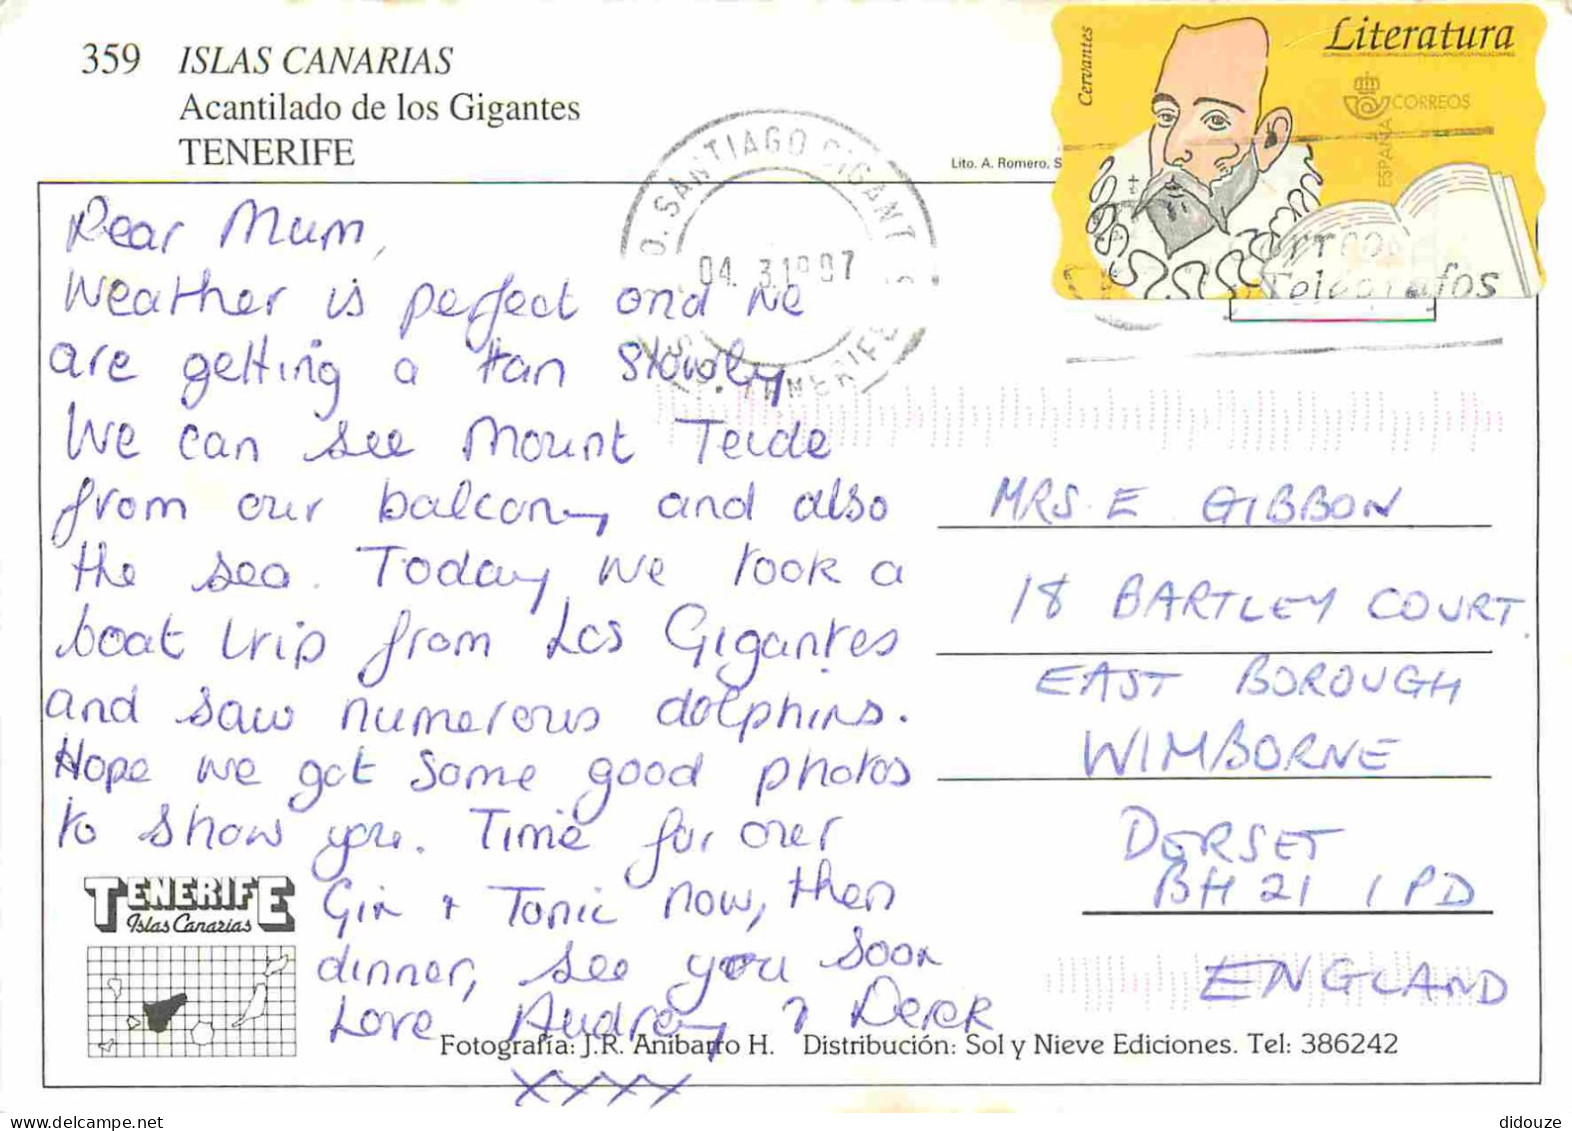 359 ISLAS CANARIAS
Acantilado de los Gigantes
TENERIFE
Lito. A. Romero, S
Cervantes
Literatura
CORREOS
ESPAÑA
Correos
Telégrafos
O. SANTIAGO GIGANT
04. 3.19 97
TENERIFE
Dear Mum,
Weather is perfect and we
are getting a tan slowly
We can see Mount Teide
from our balcony and also
the sea. Today we took a
boat trip from Los Gigantes
and saw numerous dolphins.
Hope we got some good photos
to show you. Time for our
Gin + Tonic now, then
dinner, see you soon
Love Audrey & Derek
xxxx
MRS. E GIBBON
18 BARTLEY COURT.
EAST BOROUGH
WIMBORNE
DORSET
BH21 1PD
ENGLAND
TENERIFE
Islas Canarias
Fotografía: J.R. Anibarro H. Distribución: Sol y Nieve Ediciones. Tel: 386242
didouze